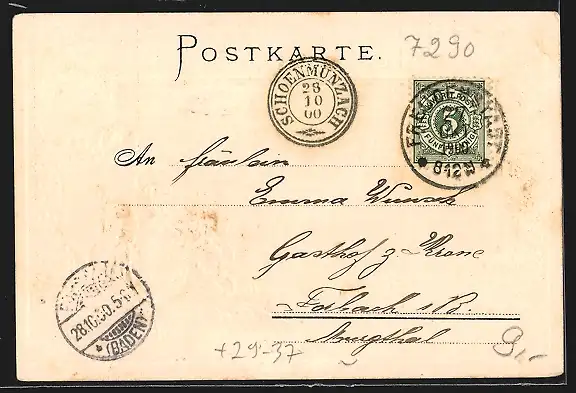 POSTKARTE.
7290
SCHOENMÜNZACH
28
10
00
5
FÜNF PFENNIG
1900
8-12 N
An Fräulein
Emma Wunsch
Gasthof z. Krone
Forbach i/B.
Murgthal
28.10.00. 5-6N
(BADEN)
+29-37
9,-